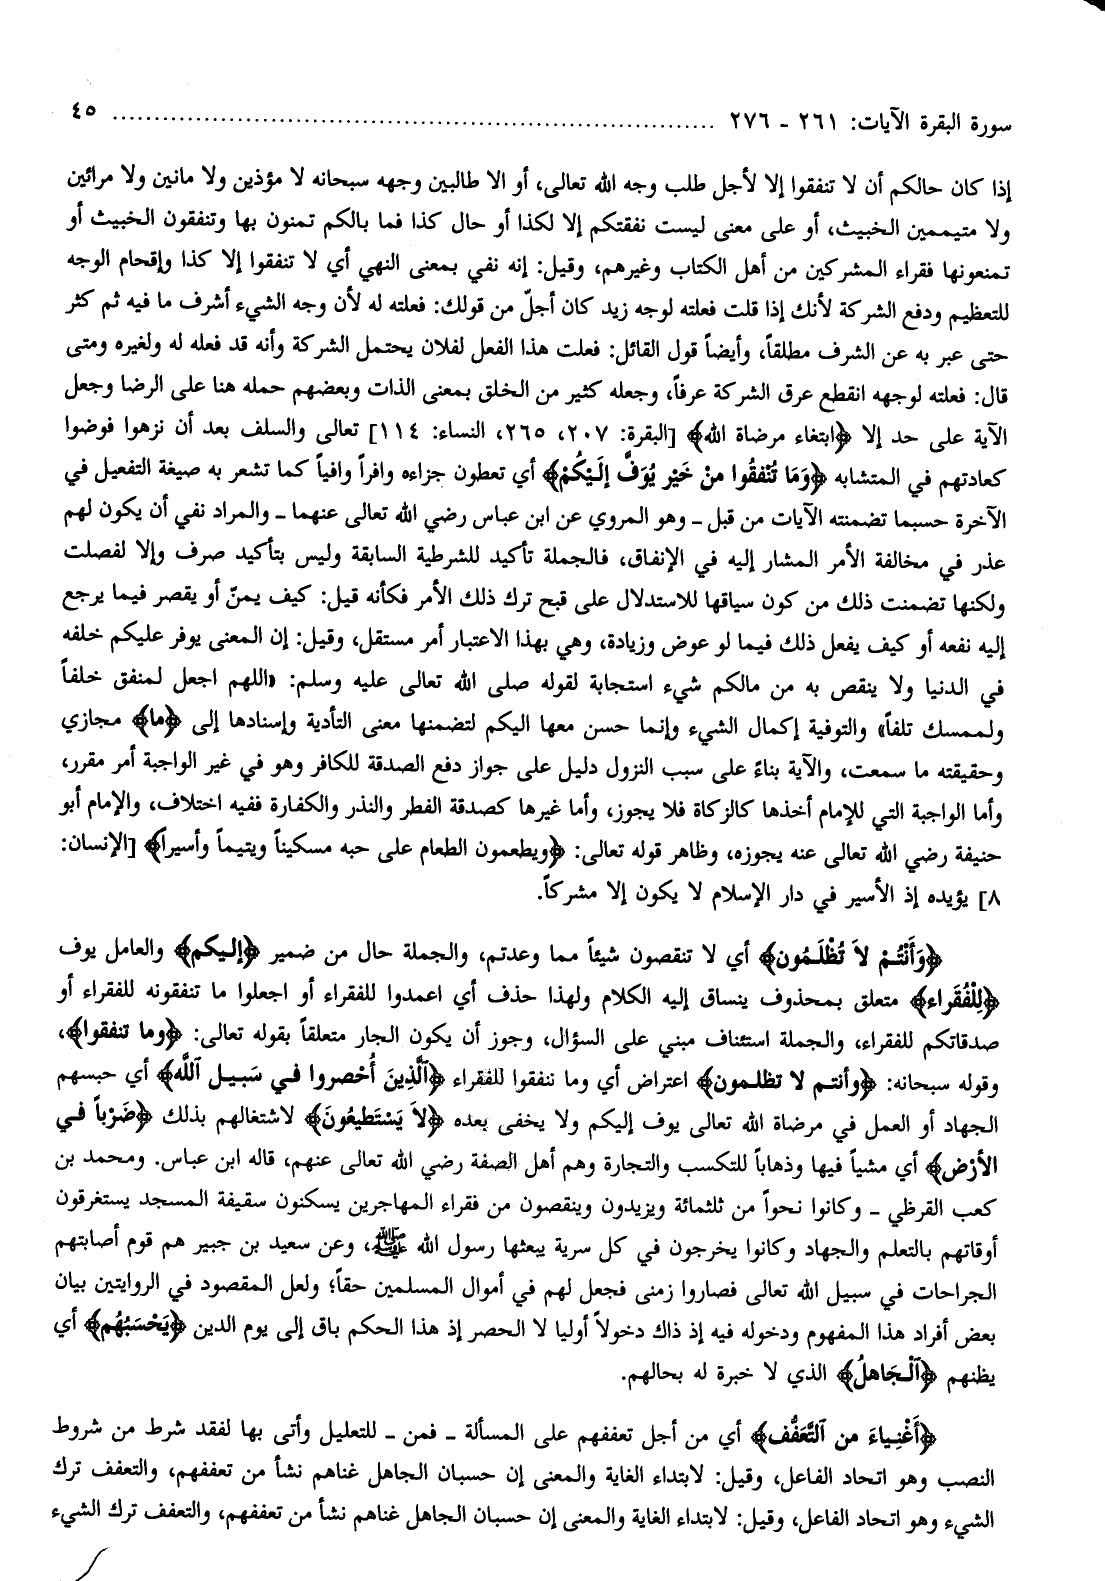 سورة البقرة الآيات: ٢٦١ ـ ٢٧٦ ........................................................................ ٤٥
إذا كان حالكم أن لا تنفقوا إلا لأجل طلب وجه الله تعالى، أو الا طالبين وجهه سبحانه لا مؤذين ولا مانين ولا مرائين
ولا متيممين الخبيث، أو على معنى ليست نفقتكم إلا لكذا أو حال كذا فما بالكم تمنون بها وتنفقون الخبيث أو
تمنعونها فقراء المشركين من أهل الكتاب وغيرهم، وقيل: إنه نفي بمعنى النهي أي لا تنفقوا إلا كذا وإقحام الوجه
للتعظيم ودفع الشركة لأنك إذا قلت فعلته لوجه زيد كان أجلّ من قولك: فعلته له لأن وجه الشيء أشرف ما فيه ثم كثر
حتى عبر به عن الشرف مطلقاً، وأيضاً قول القائل: فعلت هذا الفعل لفلان يحتمل الشركة وأنه قد فعله له ولغيره ومتى
قال: فعلته لوجهه انقطع عرق الشركة عرفاً، وجعله كثير من الخلق بمعنى الذات وبعضهم حمله هنا على الرضا وجعل
الآية على حد إلا ﴿ابتغاء مرضاة الله﴾ [البقرة: ٢٠٧، ٢٦٥، النساء: ١١٤] تعالى والسلف بعد أن نزهوا فوضوا
كعادتهم في المتشابه ﴿وَمَا تُنْفقُوا منْ خَيْر يُوَفَّ إلَيْكُمْ﴾ أي تعطون جزاءه وافراً وافياً كما تشعر به صيغة التفعيل في
الآخرة حسبما تضمنته الآيات من قبل ـ وهو المروي عن ابن عباس رضي الله تعالى عنهما ـ والمراد نفي أن يكون لهم
عذر في مخالفة الأمر المشار إليه في الإنفاق، فالجملة تأكيد للشرطية السابقة وليس بتأكيد صرف وإلا لفصلت
ولكنها تضمنت ذلك من كون سياقها للاستدلال على قبح ترك ذلك الأمر فكأنه قيل: كيف يمنّ أو يقصر فيما يرجع
إليه نفعه أو كيف يفعل ذلك فيما لو عوض وزيادة، وهي بهذا الاعتبار أمر مستقل، وقيل: إن المعنى يوفر عليكم خلفه
في الدنيا ولا ينقص به من مالكم شيء استجابة لقوله صلى الله تعالى عليه وسلم: «اللهم اجعل لمنفق خلفاً
ولممسك تلفاً» والتوفية إكمال الشيء وإنما حسن معها اليكم لتضمنها معنى التأدية وإسنادها إلى ﴿ما﴾ مجازي
وحقيقته ما سمعت، والآية بناءً على سبب النزول دليل على جواز دفع الصدقة للكافر وهو في غير الواجبة أمر مقرر،
وأما الواجبة التي للإمام أخذها كالزكاة فلا يجوز، وأما غيرها كصدقة الفطر والنذر والكفارة ففيه اختلاف، والإمام أبو
حنيفة رضي الله تعالى عنه يجوزه، وظاهر قوله تعالى: ﴿ويطعمون الطعام على حبه مسكيناً ويتيماً وأسيراً﴾ [الإنسان:
٨] يؤيده إذ الأسير في دار الإسلام لا يكون إلا مشركاً.
﴿وَأَنْتُمْ لاَ تُظْلَمُون﴾ أي لا تنقصون شيئاً مما وعدتم، والجملة حال من ضمير ﴿إليكم﴾ والعامل يوف
﴿للْفُقَراء﴾ متعلق بمحذوف ينساق إليه الكلام ولهذا حذف أي اعمدوا للفقراء أو اجعلوا ما تنفقونه للفقراء أو
صدقاتكم للفقراء، والجملة استئناف مبني على السؤال، وجوز أن يكون الجار متعلقاً بقوله تعالى: ﴿وما تنفقوا﴾،
وقوله سبحانه: ﴿وأنتم لا تظلمون﴾ اعتراض أي وما تنفقوا للفقراء ﴿ٱلَّذينَ أُحْصروا في سَبيل ٱللَّه﴾ أي حبسهم
الجهاد أو العمل في مرضاة الله تعالى يوف إليكم ولا يخفى بعده ﴿لاَ يَسْتَطيعُونَ﴾ لاشتغالهم بذلك ﴿ضَرْباً في
الأرْض﴾ أي مشياً فيها وذهاباً للتكسب والتجارة وهم أهل الصفة رضي الله تعالى عنهم، قاله ابن عباس. ومحمد بن
كعب القرظي ـ وكانوا نحواً من ثلثمائة ويزيدون وينقصون من فقراء المهاجرين يسكنون سقيفة المسجد يستغرقون
أوقاتهم بالتعلم والجهاد وكانوا يخرجون في كل سرية يبعثها رسول الله ﷺ، وعن سعيد بن جبير هم قوم أصابتهم
الجراحات في سبيل الله تعالى فصاروا زمنى فجعل لهم في أموال المسلمين حقاً؛ ولعل المقصود في الروايتين بيان
بعض أفراد هذا المفهوم ودخوله فيه إذ ذاك دخولاً أوليا لا الحصر إذ هذا الحكم باق إلى يوم الدين ﴿يَحْسَبُهُم﴾ أي
يظنهم ﴿ٱلْجَاهلُ﴾ الذي لا خبرة له بحالهم.
﴿أَغْنياءَ من ٱلتَّعَفُّف﴾ أي من أجل تعففهم على المسألة ـ فمن ـ للتعليل وأتى بها لفقد شرط من شروط
النصب وهو اتحاد الفاعل، وقيل: لابتداء الغاية والمعنى إن حسبان الجاهل غناهم نشأ من تعففهم، والتعفف ترك
الشيء وهو اتحاد الفاعل، وقيل: لابتداء الغاية والمعنى إن حسبان الجاهل غناهم نشأ من تعففهم، والتعفف ترك الشيء